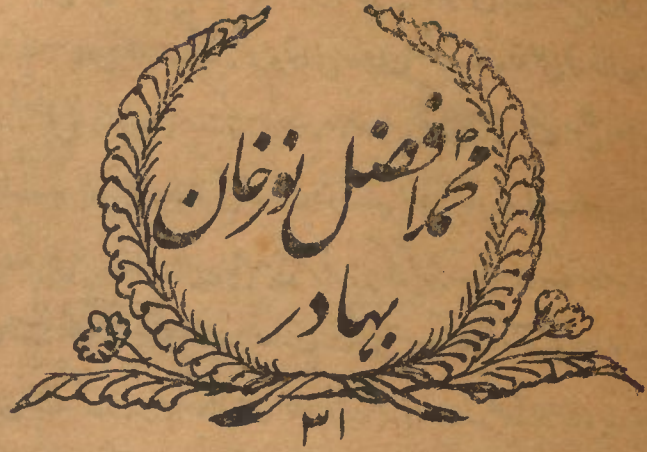 محمد افضل نور خان
بہادر
۳۱